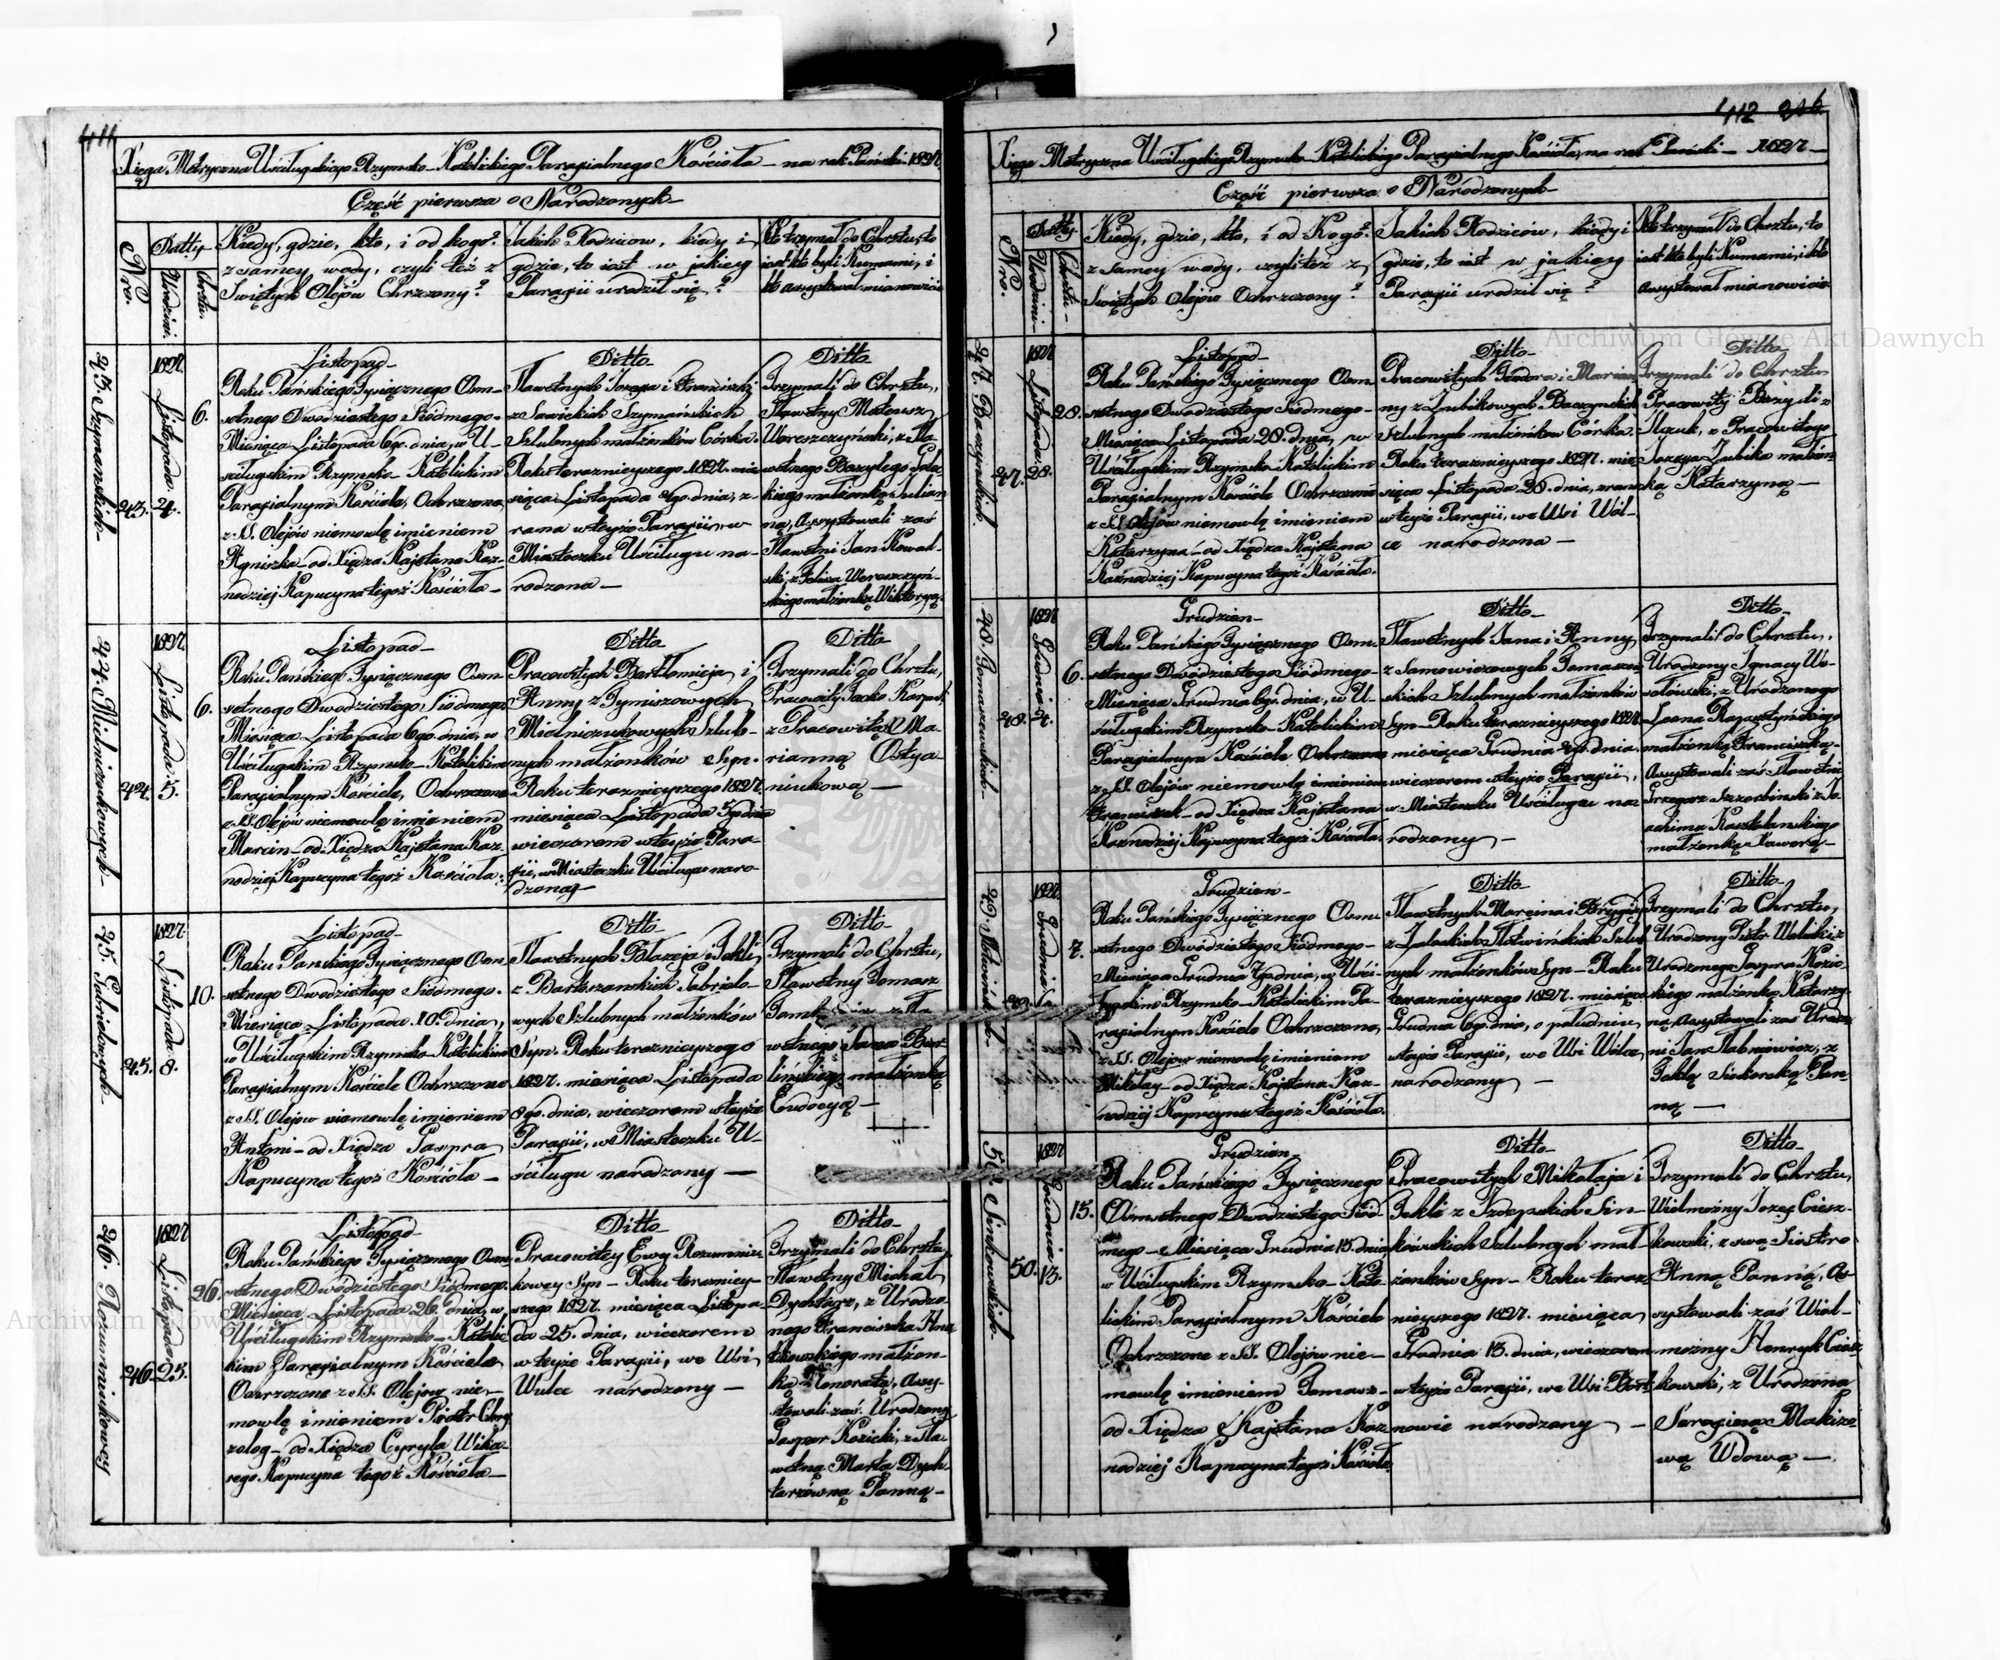 411
Xięga Metryczna Uściługskiego Rzymsko-Katolickiego Parafialnego Kościoła na rok Pański 1827
Część pierwsza o Narodzonych
Nro.
Datty
Urodzin.
Chrztu.
Kiedy, gdzie, kto, i od kogo?
z samey wody, czyli też z
Świętych Olejów Chrzczony?
Jakich Rodziców, kiedy i
gdzie, to iest w jakiey
Parafii urodził się?
Kto trzymał do Chrztu, to
iest kto byli Kumami, i
kto assystował mianowicie
43. Szymańskich
43.
1827. Listopada
4.
6.
Listopad
Roku Pańskiego Tysiącznego Ośm-
setnego Dwudziestego Siódmego
Miesiąca Listopada 6go. dnia, w U-
ściługskim Rzymsko-Katolickim
Parafialnym Kościele, Ochrzczono
z SS. Olejów niemowlę imieniem
Agniszka od Xiędza Kajetana Kaz-
nodziej Kapucyna tegoż Kościoła
Ditto
Sławetnych Jozefa i Franciszki
z Sawickich Szymańskich
Szlubnych małżonków Córka.
Roku teraznieyszego 1827. mie-
siąca Listopada 4go. dnia, z-
rana w teyże Parafii, w
Miasteczku Uściługu na-
rodzona
Ditto
Trzymali do Chrztu,
Sławetny Mateusz
Wereszczyński, z Sła-
wetnego Bazylego Gała-
kiego małżonką Julian-
ną, Assystowali zaś
Sławetni Jan Kowal-
ski, z Felixa Wereszczyń-
skiego małżonką Wiktoryą.
44. Mielniczukowych
44.
1827. Listopada
5.
6.
Listopad
Roku Pańskiego Tysiącznego Ośm-
setnego Dwudziestego Siódmego
Miesiąca Listopada 6go. dnia, w
Uściługskim Rzymsko-Katolickim
Parafialnym Kościele, Ochrzczono
z SS. Olejów niemowlę imieniem
Marcin od Xiędza Kajetana Kaz-
nodziej Kapucyna tegoż Kościoła.
Ditto
Pracowitych Bartłomieja i
Anny z Tymiszowych
Mielniczukowych Szlub-
nych małżonków Syn.
Roku teraznieyszego 1827.
miesiąca Listopada 5go dnia
wieczorem w teyże Para-
fii, w Miasteczku Uściługu naro-
dzony
Ditto
Trzymali do Chrztu,
Pracowity Jacko Karpuk,
z Pracowitą Ma-
rianną Ostya-
niukową
45. Gabrielowych
45.
1827. Listopada
8.
10.
Listopad
Roku Pańskiego Tysiącznego Ośm-
setnego Dwudziestego Siódmego.
Miesiąca Listopada 10. dnia,
w Uściługskim Rzymsko-Katolickim
Parafialnym Kościele Ochrzczono
z SS. Olejów niemowlę imieniem
Antoni od Xiędza Gaspra
Kapucyna tegoż Kościoła
Ditto
Sławetnych Błażeja i Tekli
z Bartoszewskich Gabrielo-
wych Szlubnych małżonków
Syn. Roku teraznieyszego
1827. miesiąca Listopada
8go. dnia, wieczorem w teyże
Parafii, w Miasteczku U-
ściługu narodzony
Ditto
Trzymali do Chrztu,
Sławetny Tomasz
z Sła-
wetnego Jana Bier-
lińskiego małżonką
Eudocyą
46. Rozumniukowey
46.
1827. Listopada
25.
26.
Listopad
Roku Pańskiego Tysiącznego Ośm-
setnego Dwudziestego Siódmego
Miesiąca Listopada 26. dnia, w
Uściługskim Rzymsko-Katolic-
kim Parafialnym Kościele
Ochrzczono z SS. Olejów nie-
mowlę imieniem Piotr Chry-
zolog od Xiędza Cyryla Wika-
rego Kapucyna tegoż Kościoła
Ditto
Pracowitey Ewy Rozumniu-
kowey Syn Roku terazniey-
szego 1827. miesiąca Listopa-
da 25. dnia, wieczorem
w teyże Parafii, we Wsi
Wulce narodzony
Ditto
Trzymali do Chrztu
Sławetny Michał
Dychtarz, z Urodzo-
nego Franciszka Hna-
tkowskiego małżon-
ką Honoratą, Assy-
stowali zaś Urodzony
Gasper Kozicki, z Sła-
wetną Martą Dych-
tarzówną Panną
412
Xięga Metryczna Uściługskiego Rzymsko-Katolickiego Parafialnego Kościoła, na rok Pański 1827
Część pierwsza o Narodzonych
Nro.
Datty
Urodzin
Chrztu
Kiedy, gdzie, kto, i od Kogo?
z samey wody, czyli też z
Świętych Olejów Ochrzczony?
Jakich Rodziców, kiedy i
gdzie, to iest w jakiey
Parafii urodził się?
Kto trzymał do Chrztu, to
iest kto byli Kumami, i kto
Assystował mianowicie
47. Baczynskich
47.
1827. Listopada
28.
28.
Listopad
Roku Pańskiego Tysiącznego Ośm-
setnego Dwudziestego Siódmego
Miesiąca Listopada 28. dnia, w
Uściługskim Rzymsko-Katolickim
Parafialnym Kościele Ochrzczono
z SS. Olejów niemowlę imieniem
Katarzyna od Xiędza Kajetana
Kaznodziej Kapucyna tegoż Kościoła.
Ditto
Pracowitych Teodora i Marian-
ny z Jubikowych Baczynskich
Szlubnych małżonków Córka.
Roku teraznieyszego 1827. mie-
siąca Listopada 28. dnia, zrana
w teyże Parafii, we Wsi Wól-
ce narodzona
Ditto
Trzymali do Chrztu
Pracowity Bazyli
Ilczuk, z Pracowitego
Jozefa Jubika małżon-
ką Katarzyną
48. Tomaszewskich
48.
1827. Grudnia
4.
6.
Grudzien
Roku Pańskiego Tysiącznego Ośm-
setnego Dwudziestego Siódmego
Miesiąca Grudnia 6go. dnia, w U-
ściługskim Rzymsko-Katolickim
Parafialnym Kościele Ochrzczono
z SS. Olejów niemowlę imieniem
Franciszek od Xiędza Kajetana
Kaznodziej Kapucyna tegoż Kościoła.
Ditto
Sławetnych Jana i Anny
z Samowiczowych Tomaszew-
skich Szlubnych małżonków
Syn Roku teraznieyszego 1827.
miesiąca Grudnia 4go. dnia
wieczorem w teyże Parafii,
w Miasteczku Uściługu na-
rodzony
Ditto
Trzymali do Chrztu,
Urodzony Ignacy Wo-
łołowski, z Urodzonego
Leona Rogawłyńskiego
małżonką Franciszką.
Assystowali zaś Sławetni
Grzegorz Szczerbinski z Jo-
achima Kosztelanskiego
małżonką Xawerą
49.
1827. Grudnia
6.
7.
Grudzien
Roku Pańskiego Tysiącznego Ośm-
setnego Dwudziestego Siódmego
Miesiąca Grudnia 7go dnia, w Uści-
ługskim Rzymsko-Katolickim Pa-
rafialnym Kościele Ochrzczono,
z SS. Olejów niemowlę imieniem
Mikołay od Xiędza Kajetana Kaz-
nodziej Kapucyna tegoż Kościoła.
Ditto
Sławetnych Marcina i Brygidy
z Zaleskich Słotwińskich Szlub-
nych małżonków Syn Roku
teraznieyszego 1827. miesiąca
Grudnia 6go. dnia, o południu,
w teyże Parafii, we Wsi Wólce,
narodzony
Ditto
Trzymali do Chrztu,
Urodzony Piotr Walicki z
Urodzonego Gaspra Kozic-
kiego małżonką Katarzy-
ną, Assystowali zaś Urodze-
ni Jan Slabniewicz, z
Teklą Sikorską Pan-
ną
50. Sinkowskich
50.
1827. Grudnia
13.
15.
Grudzien
Roku Pańskiego Tysiącznego
Ośmsetnego Dwudziestego Siód-
mego Miesiąca Grudnia 15. dnia
w Uściługskim Rzymsko-Kato-
lickim Parafialnym Kościele
Ochrzczono z SS. Olejów nie-
mowlę imieniem Tomasz
od Xiędza Kajetana Kaz-
nodziej Kapucyna tegoż Kościoła.
Ditto
Pracowitych Mikołaja i
Tekli z Szczepskich Sin-
kowskich Szlubnych mał-
żonków Syn Roku teraz-
nieyszego 1827. miesiąca
Grudnia 13. dnia, wieczorem
w teyże Parafii, we Wsi Bort-
nowie narodzony
Ditto
Trzymali do Chrztu,
Wielmożny Jozef Ciesz-
kowski, z swą Siostrą
Anną Panną, As-
systowali zaś Wiel-
możny Henryk Ciesz-
kowski, z Urodzoną
Serafiną Makize-
wą Wdową
Archiwum Główne Akt Dawnych
Archiwum Główne Akt Dawnych